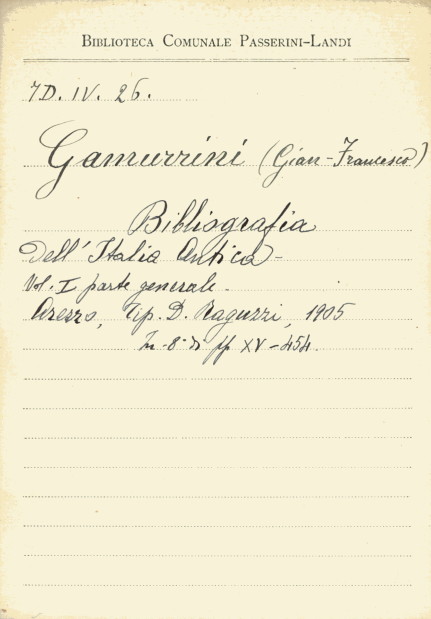 BIBLIOTECA COMUNALE PASSERINI-LANDI
7D. IV. 26.
Gamurrini (Gian-Francesco)
Bibliografia
dell'Italia Antica -
Vol. I parte generale.
Arezzo, Tip. D. Raguzzi, 1905
In-8° di pp XV-454.